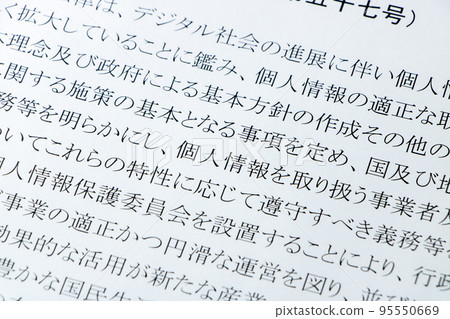 五十七号）
律は、デジタル社会の進展に伴い個人情
く拡大していることに鑑み、個人情報の適正な取
本理念及び政府による基本方針の作成その他の
に関する施策の基本となる事項を定め、国及び地
務等を明らかにし、個人情報を取り扱う事業者及
ついてこれらの特性に応じて遵守すべき義務等
個人情報保護委員会を設置することにより、行政
び事業の適正かつ円滑な運営を図り、並び
効果的な活用が新たな産業
豊かな国民生
PIXTA
pixta.jp - 95550669